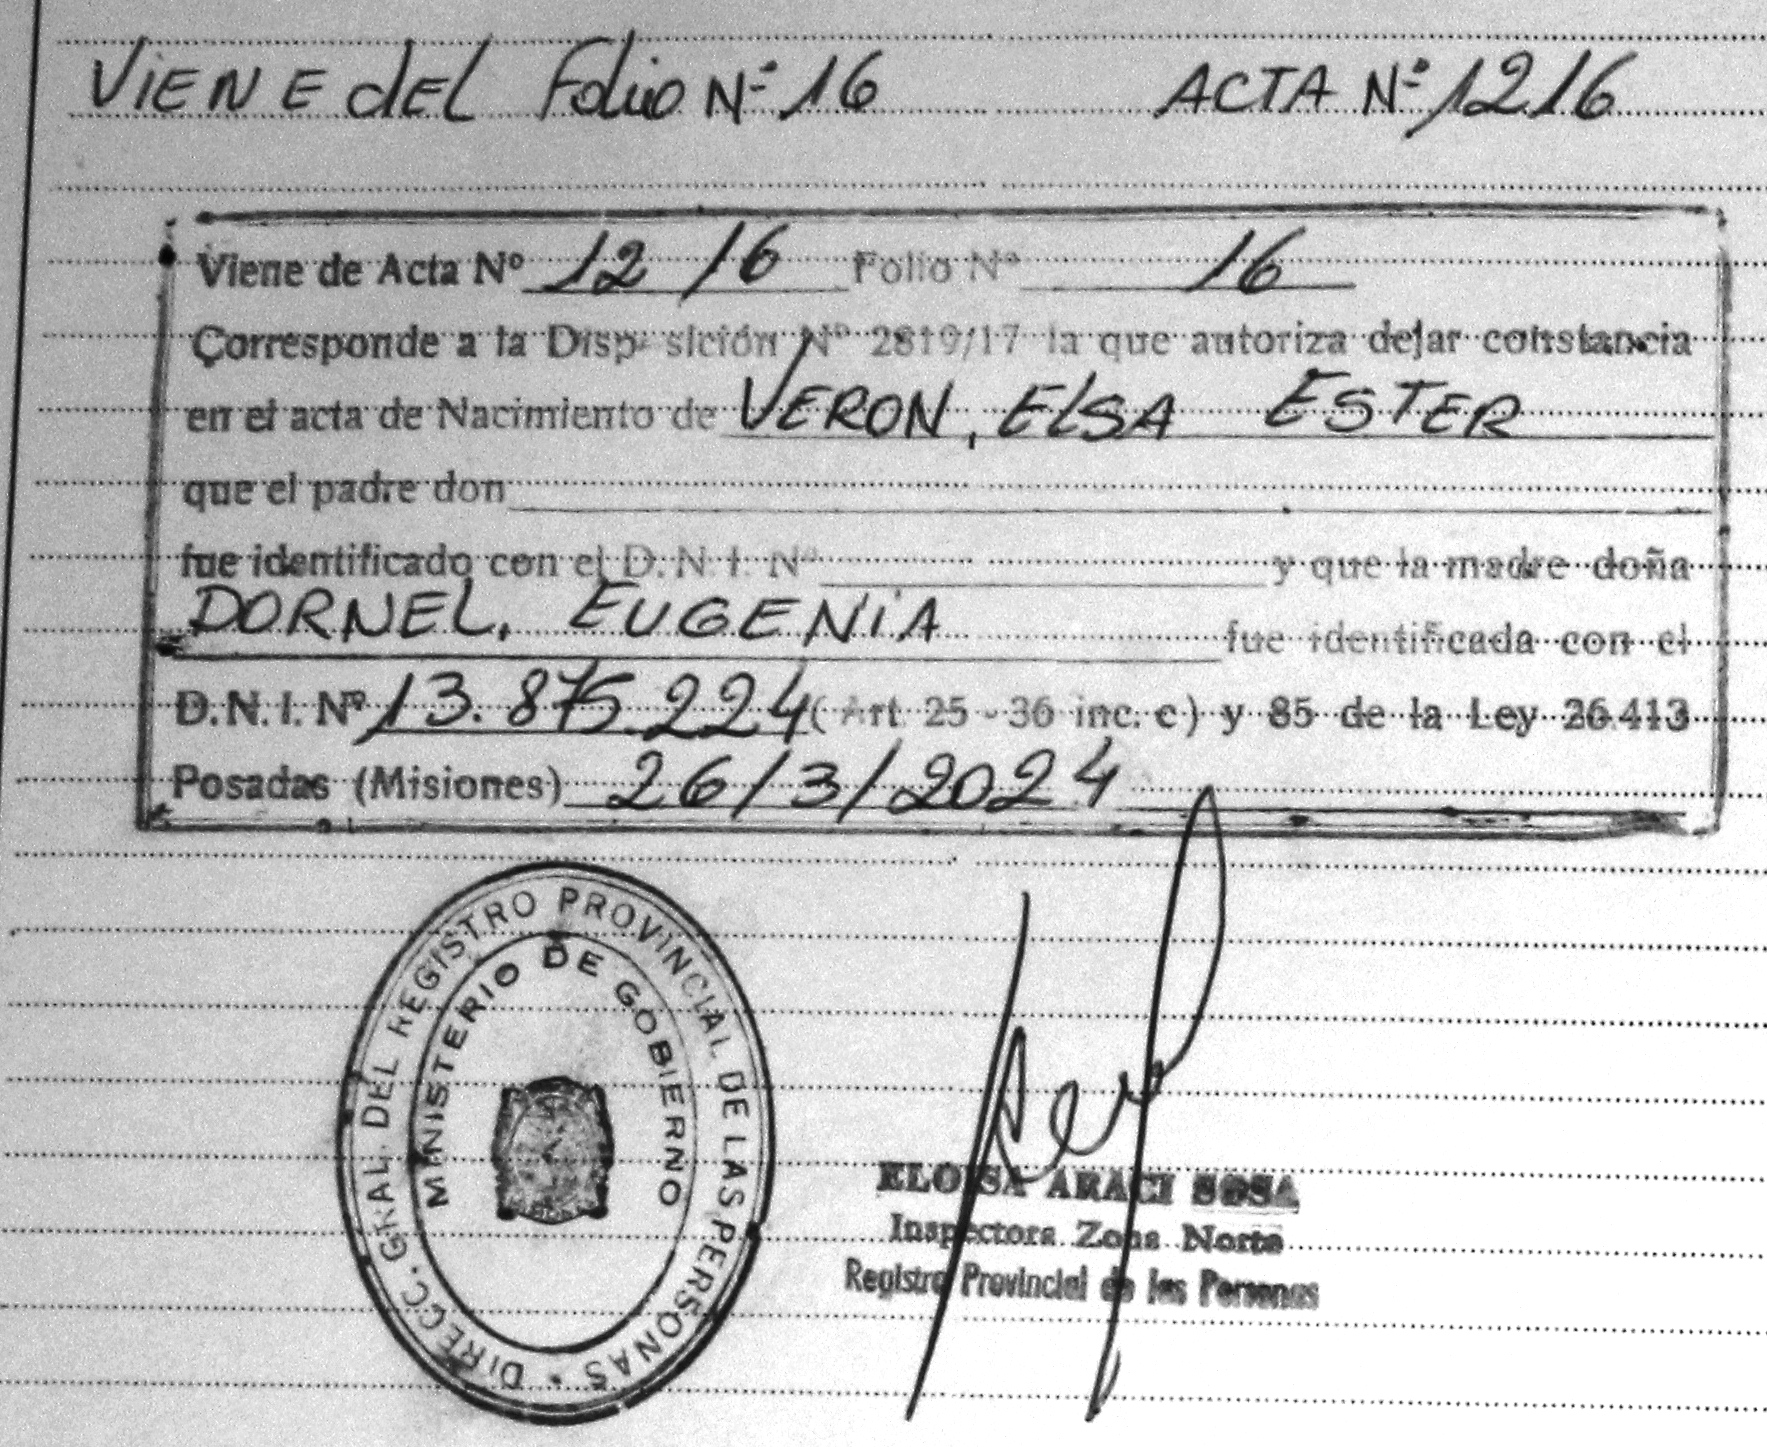 VIENE del Folio Nº 16 ACTA Nº 1216
Viene de Acta Nº 1216 Folio Nº 16
Corresponde a la Disposición Nº 2819/17 la que autoriza dejar constancia
en el acta de Nacimiento de VERON, ELSA ESTER
que el padre don
fue identificado con el D.N.I. Nº y que la madre doña
DORNEL, EUGENIA fue identificada con el
D.N.I. Nº 13.875.224 (Art 25 - 36 inc. c) y 85 de la Ley 26.413
Posadas (Misiones) 26/3/2024
DIRECC. GRAL. DEL REGISTRO PROVINCIAL DE LAS PERSONAS
MINISTERIO DE GOBIERNO
ELOISA ARACI SOSA
Inspectora Zona Norte
Registro Provincial de las Personas